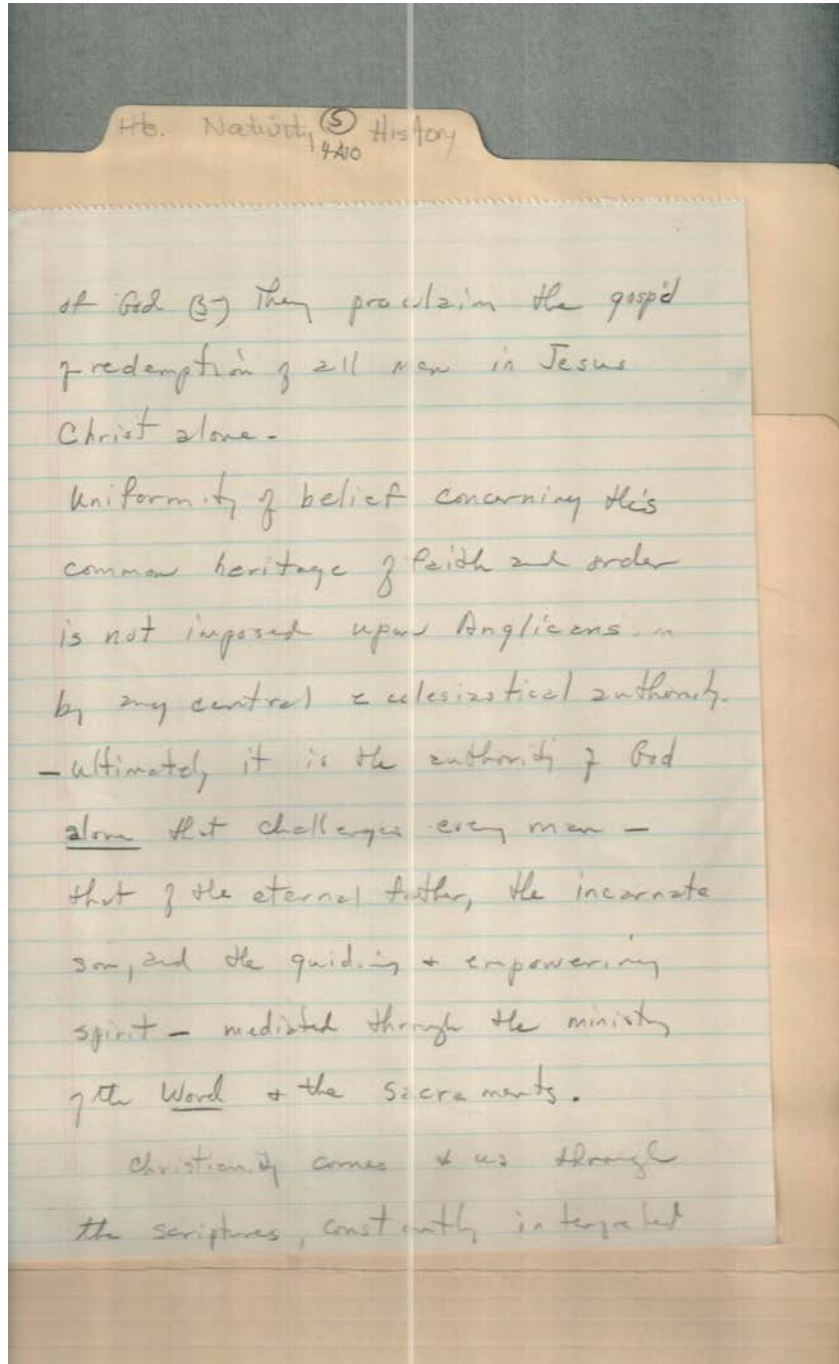 Hts. Nativity ⑤ History
4A10
of God (3-) They proculaim the gospel
of redemption of all men in Jesus
Christ alone-
Uniformity of belief concerning this
common heritage of faith and order
is not imposed upon Anglicans
by any central ecclesiastical authority.
- ultimately it is the authority of God
alone that challenges every man -
that of the eternal father, the incarnate
son, and the guiding + empowering
spirit - mediated through the ministry
of the Word + the sacraments.
Christianity comes to us through
the scriptures, constantly interpreted